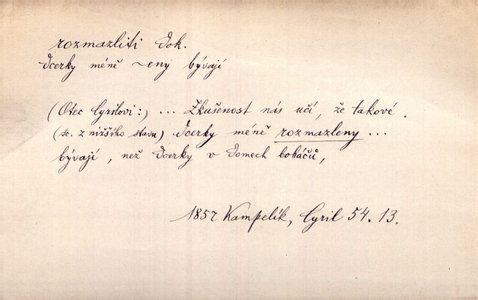 rozmazliti dok.
dcerky méně ~eny bývají
(Otec Cyrilovi:) ... Zkušenost nás učí, že takové
(sc. z nižšího stavu) dcerky méně rozmazleny ...
bývají, než dcerky v domech boháčů,
1857 Kampelík, Cyril 54. 13.